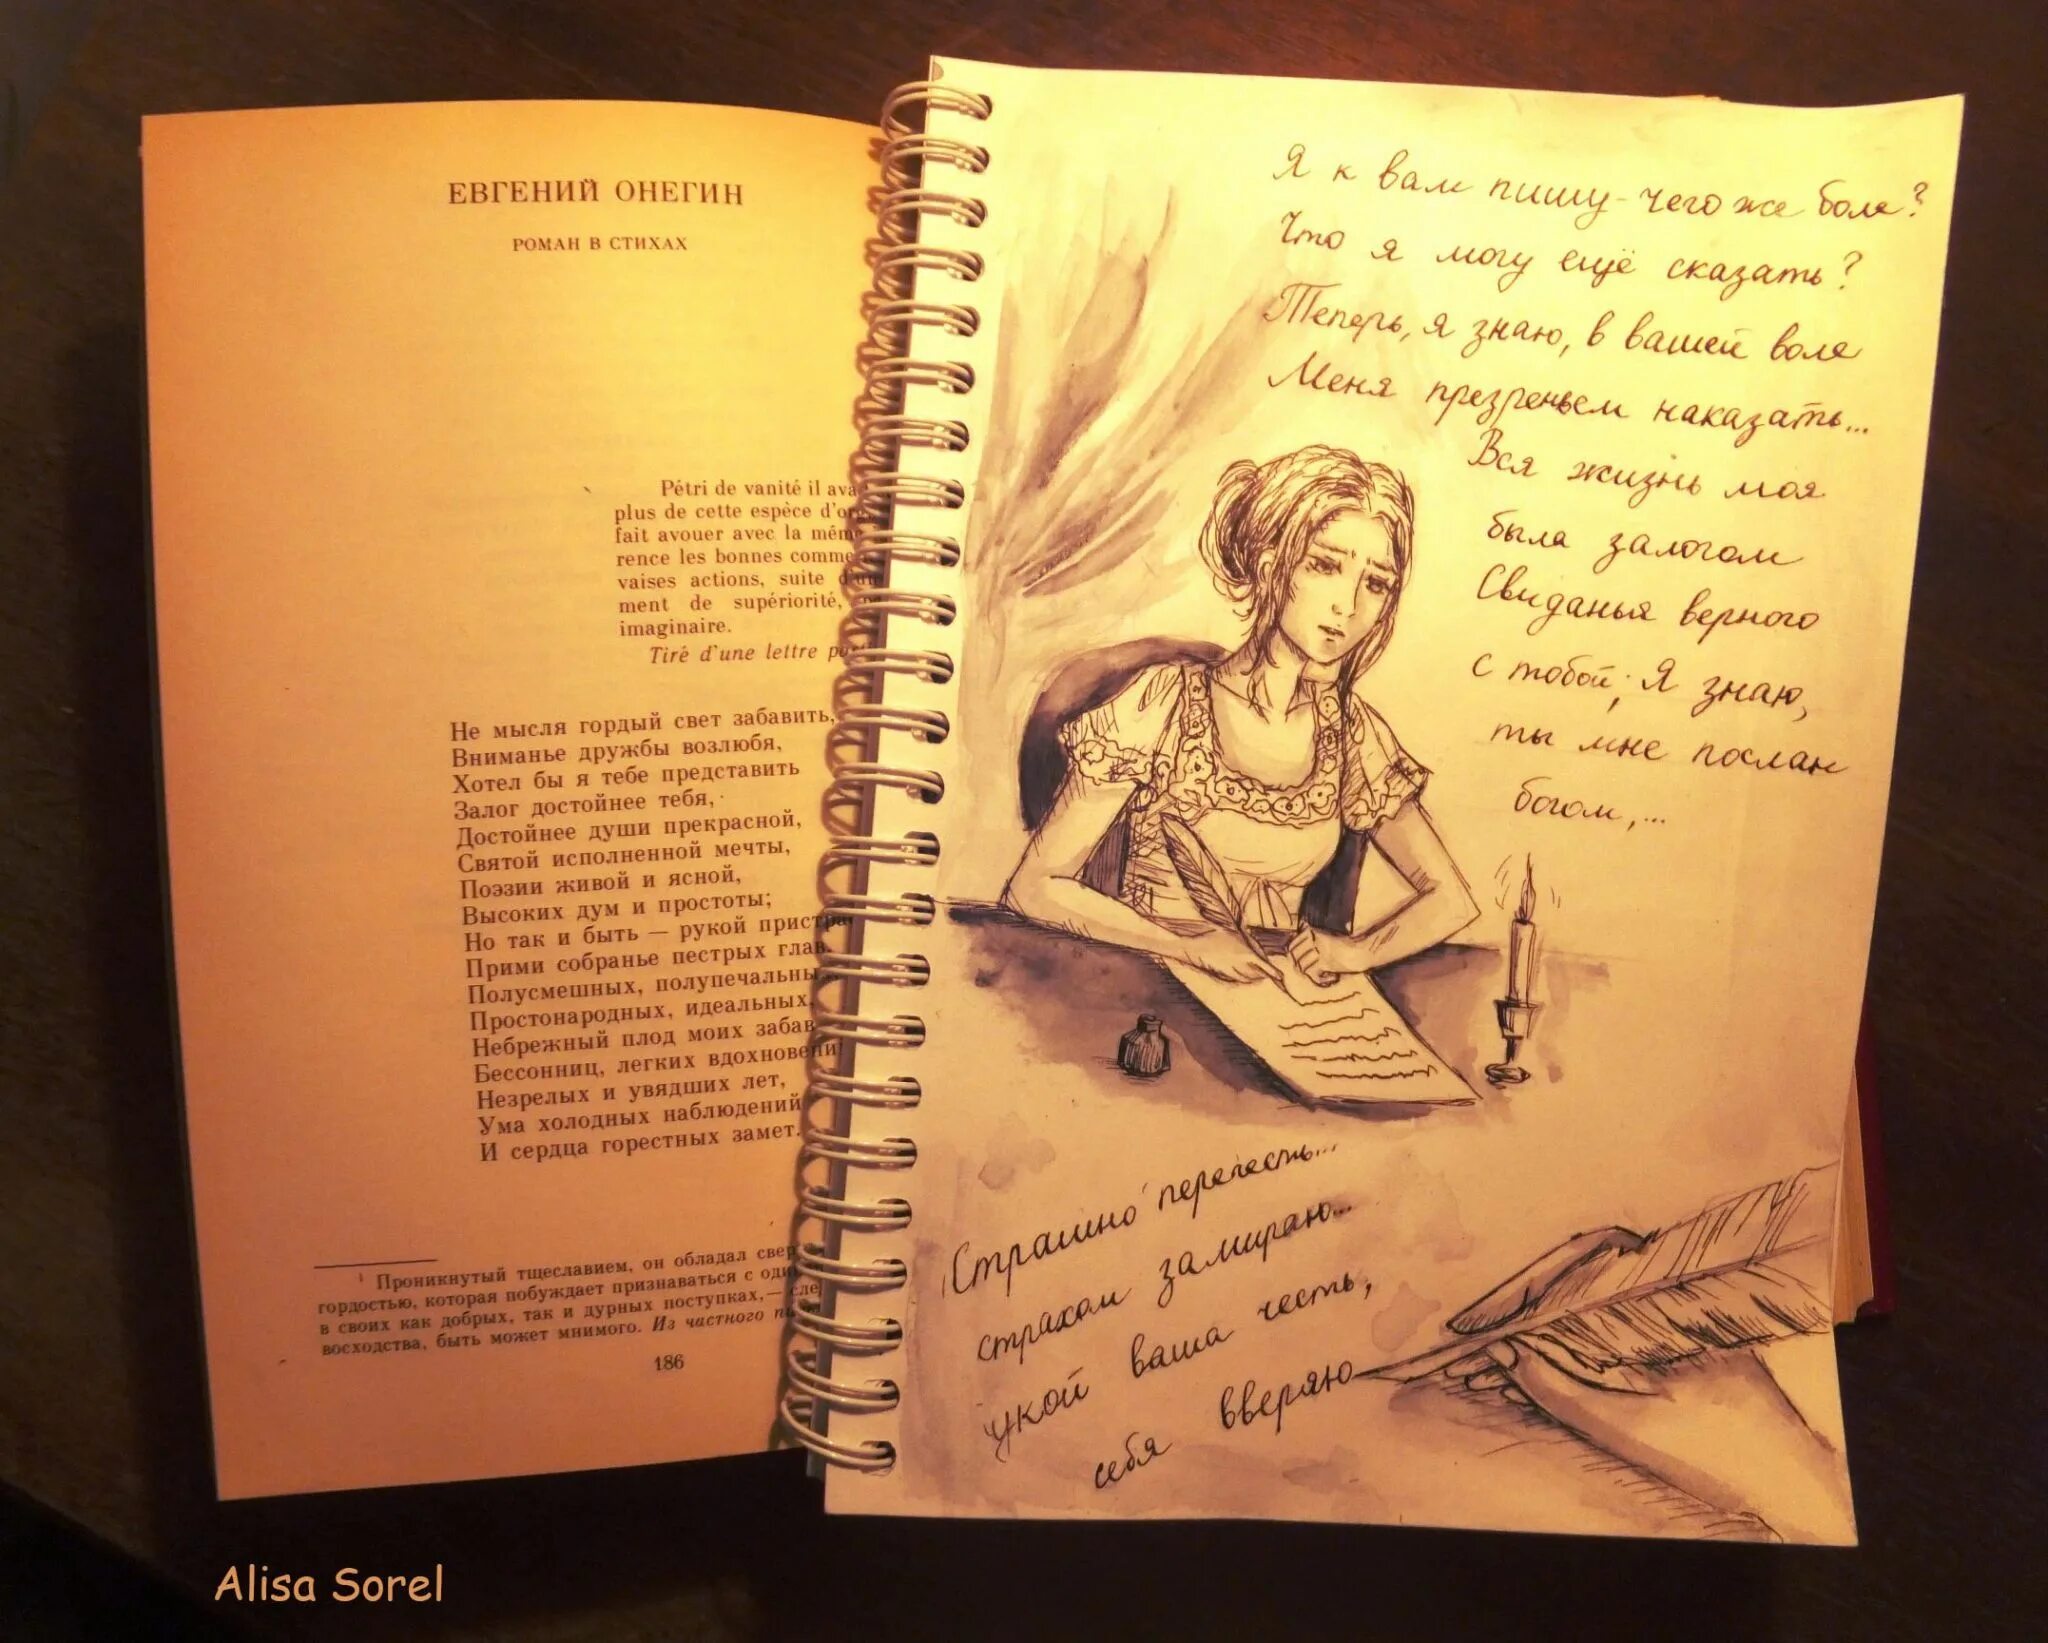 ЕВГЕНИЙ ОНЕГИН
РОМАН В СТИХАХ
Pétri de vanité il ava
plus de cette espèce d'org
fait avouer avec la mêm
rence les bonnes comme
vaises actions, suite d'un
ment de supériorité,
imaginaire.
Tiré d'une lettre part
Не мысля гордый свет забавить,
Вниманье дружбы возлюбя,
Хотел бы я тебе представить
Залог достойнее тебя,
Достойнее души прекрасной,
Святой исполненной мечты,
Поэзии живой и ясной,
Высоких дум и простоты;
Но так и быть — рукой пристрас
Прими собранье пестрых глав,
Полусмешных, полупечальны
Простонародных, идеальных,
Небрежный плод моих забав
Бессонниц, легких вдохновени
Незрелых и увядших лет,
Ума холодных наблюдений
И сердца горестных замет.
1 Проникнутый тщеславием, он обладал свер
гордостью, которая побуждает признаваться с оди
в своих как добрых, так и дурных поступках, — сле
восходства, быть может мнимого. Из частного п
186
Я к вам пишу - чего же боле?
Что я могу ещё сказать?
Теперь, я знаю, в вашей воле
Меня презреньем наказать...
Вся жизнь моя
была залогом
Свиданья верного
с тобой; Я знаю,
ты мне послан
богом,...
Страшно перечесть...
страхом замираю...
укой ваша честь,
себя вверяю
Alisa Sorel